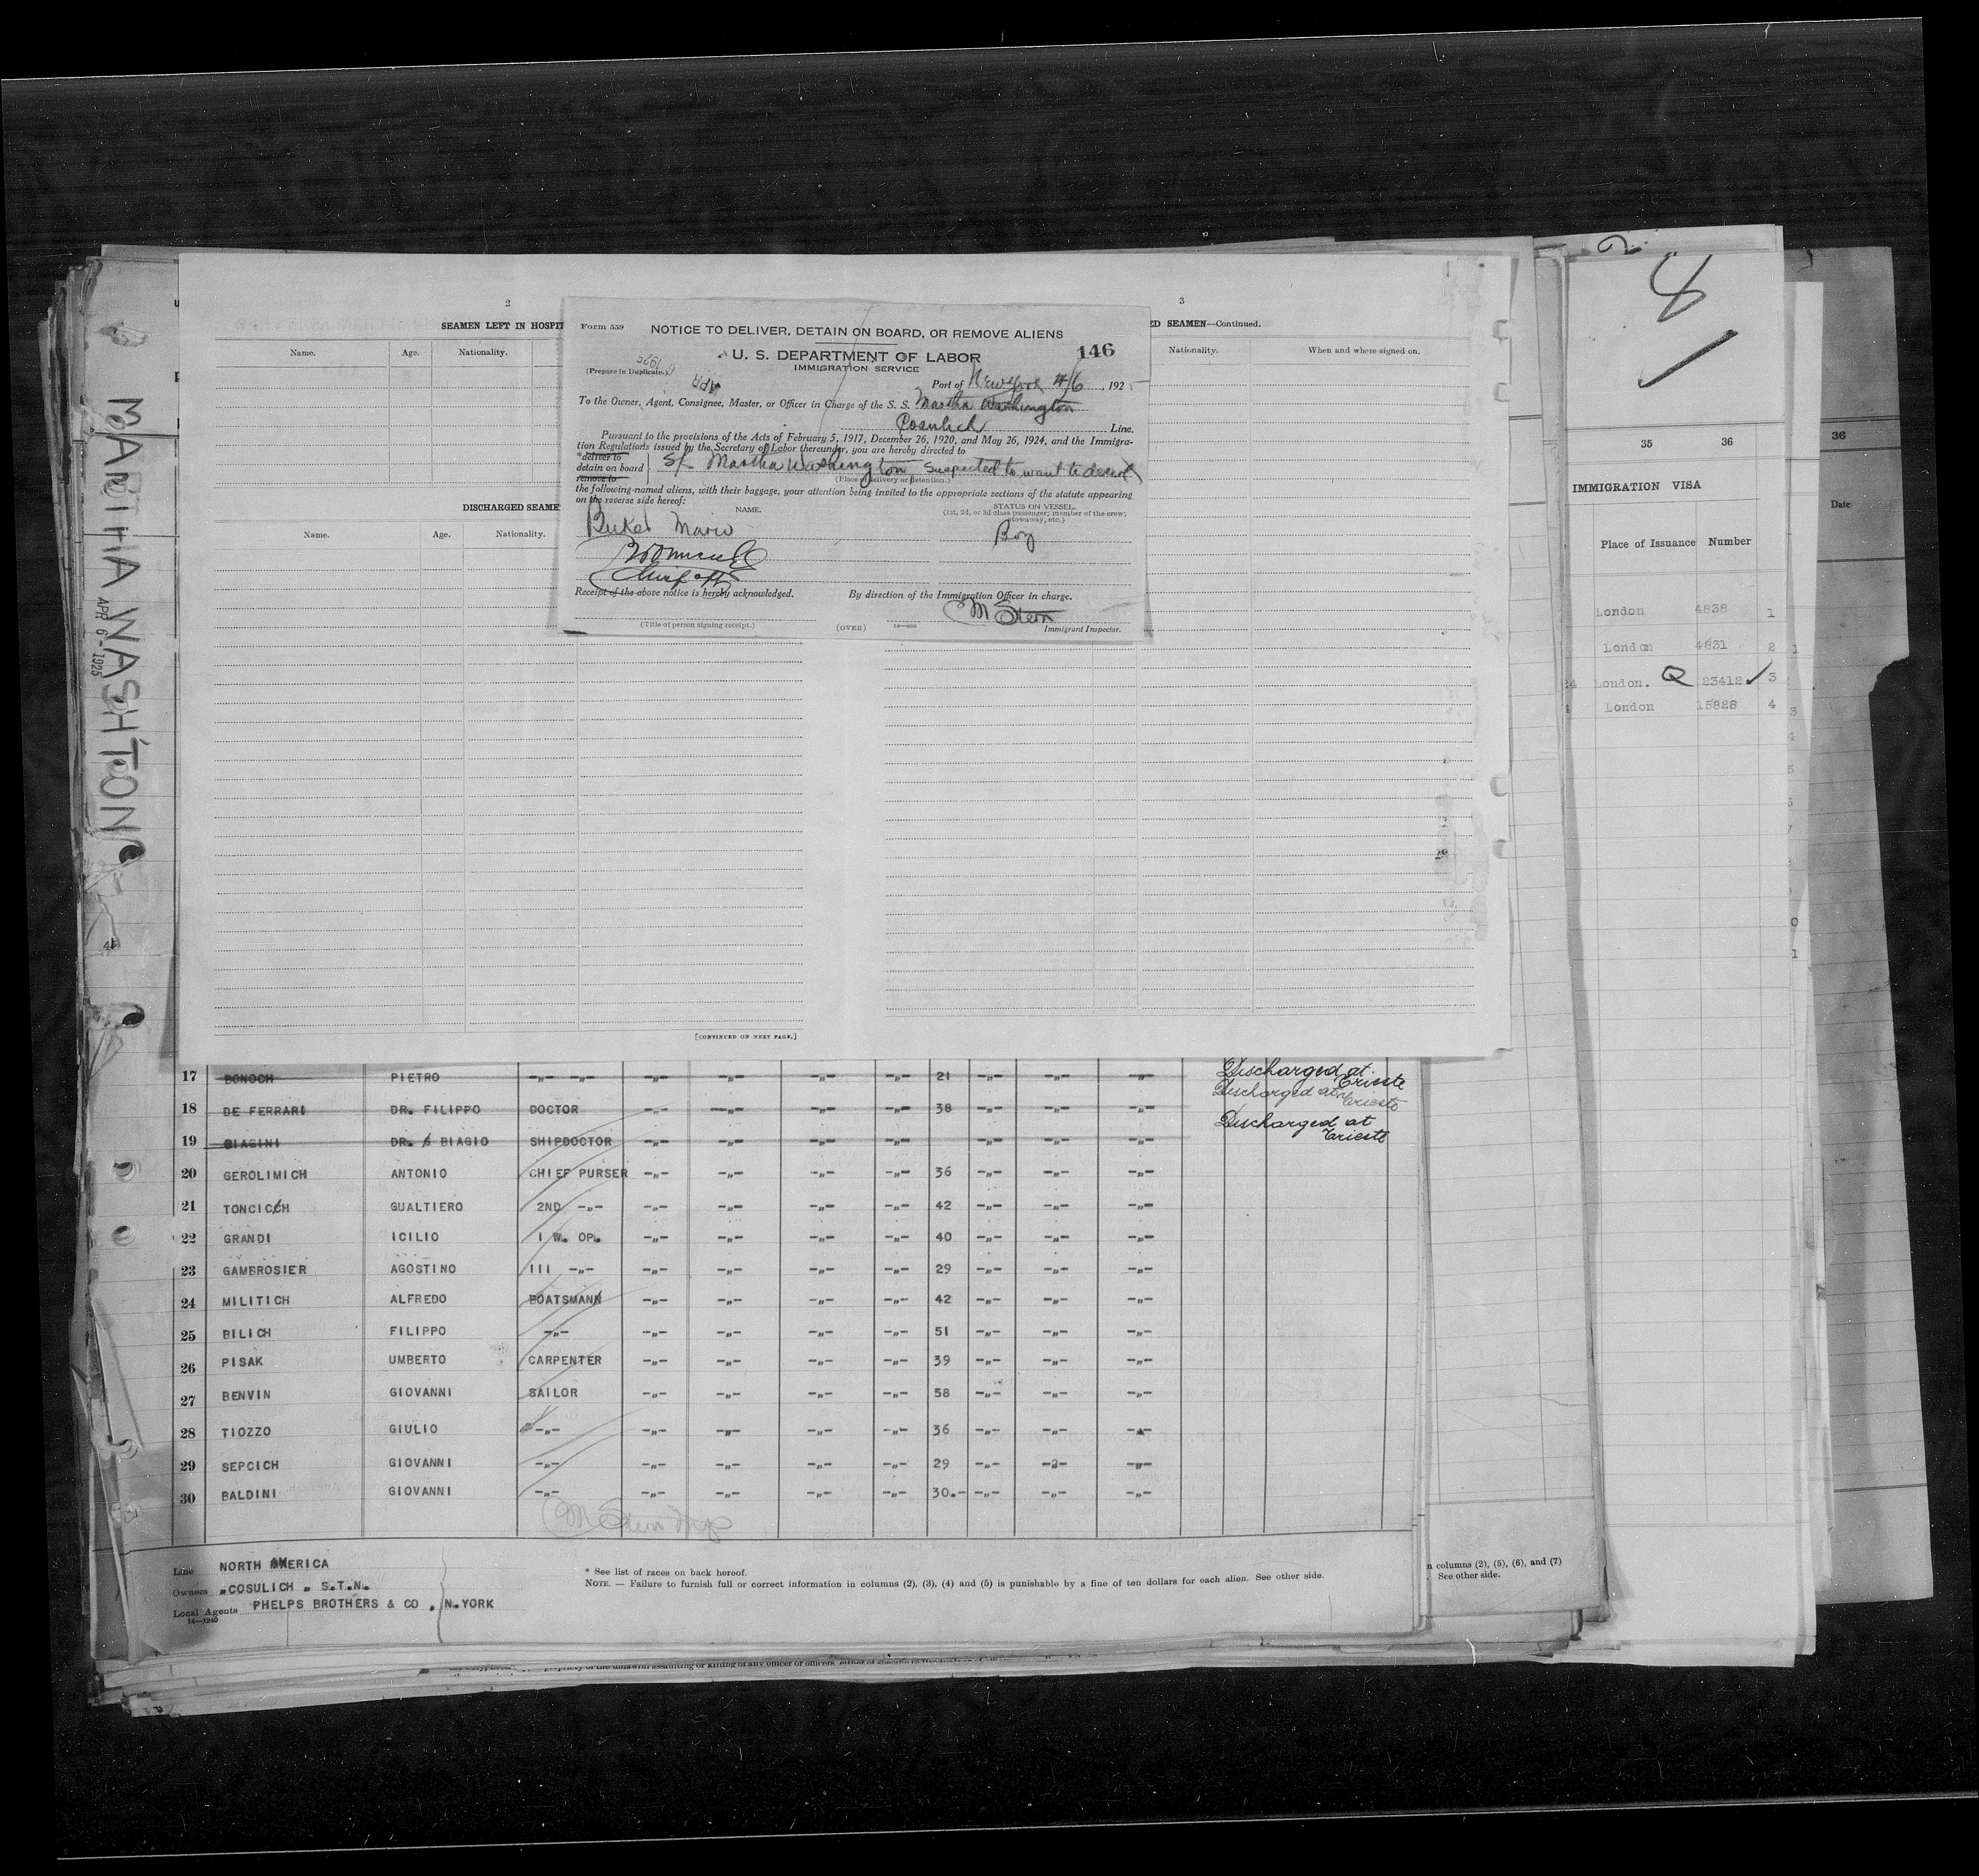 2
3
SEAMEN LEFT IN HOSPIT
ED SEAMEN—Continued.
Name. Age. Nationality.
Nationality. When and where signed on.
Form 559
NOTICE TO DELIVER, DETAIN ON BOARD, OR REMOVE ALIENS
146
U. S. DEPARTMENT OF LABOR
IMMIGRATION SERVICE
(Prepare in Duplicate.)
APR 6 1925
Port of New York 4/6, 192
To the Owner, Agent, Consignee, Master, or Officer in Charge of the S. S. Martha Washington
Cosulich Line.
Pursuant to the provisions of the Acts of February 5, 1917, December 26, 1920, and May 26, 1924, and the Immigra-
tion Regulations issued by the Secretary of Labor thereunder, you are hereby directed to
*deliver to
detain on board
remove to
S/S Martha Washington, suspected to want to desert
(Place of delivery or detention.)
the following-named aliens, with their baggage, your attention being invited to the appropriate sections of the statute appearing
on the reverse side hereof:
NAME.
STATUS ON VESSEL.
(1st, 2d, or 3d class passenger; member of the crew;
stowaway, etc.)
Mario
Boy
Receipt of the above notice is hereby acknowledged.
By direction of the Immigration Officer in charge.
M Stern
(Title of person signing receipt.)
(OVER)
Immigrant Inspector.
DISCHARGED SEAME
Name. Age. Nationality.
[CONTINUED ON NEXT PAGE.]
MARTHA WASHTON
APR 6 - 1925
17 BONOCH PIETRO -"- -"- -"- -"- -"- -"- 21 -"- -"- -"- Discharged at Trieste
18 DE FERRARI DR. FILIPPO DOCTOR -"- -"- -"- -"- 38 -"- -"- -"- Discharged at Trieste
19 BIAGINI DR. BIAGIO SHIPDOCTOR -"- -"- -"- -"- -"- -"- -"- Discharged at Trieste
20 GEROLIMICH ANTONIO CHIEF PURSER -"- -"- -"- -"- 36 -"- -"- -"-
21 TONCICCH GUALTIERO 2ND -"- -"- -"- -"- -"- 42 -"- -"- -"-
22 GRANDI ICILIO I W. OP. -"- -"- -"- -"- 40 -"- -"- -"-
23 GAMBROSIER AGOSTINO III -"- -"- -"- -"- -"- 29 -"- -"- -"-
24 MILITICH ALFREDO BOATSMANN -"- -"- -"- -"- 42 -"- -"- -"-
25 BILICH FILIPPO -"- -"- -"- -"- -"- 51 -"- -"- -"-
26 PISAK UMBERTO CARPENTER -"- -"- -"- -"- 39 -"- -"- -"-
27 BENVIN GIOVANNI SAILOR -"- -"- -"- -"- 58 -"- -"- -"-
28 TIOZZO GIULIO -"- -"- -"- -"- -"- 36 -"- -"- -"-
29 SEPCICH GIOVANNI -"- -"- -"- -"- -"- 29 -"- -"- -"-
30 BALDINI GIOVANNI -"- -"- -"- -"- -"- 30.- -"- -"- -"-
M Stern
Line NORTH AMERICA
Owners "COSULICH " S.T.N.
Local Agents PHELPS BROTHERS & CO , N.YORK
14—1240
* See list of races on back hereof.
NOTE. — Failure to furnish full or correct information in columns (2), (3), (4) and (5) is punishable by a fine of ten dollars for each alien. See other side.
n columns (2), (5), (6), and (7)
See other side.
8
35 36
IMMIGRATION VISA
Place of Issuance Number
London 4838 1
London 4831 2
24 London. 23412 ✓ 3
London 15828 4
36
Date